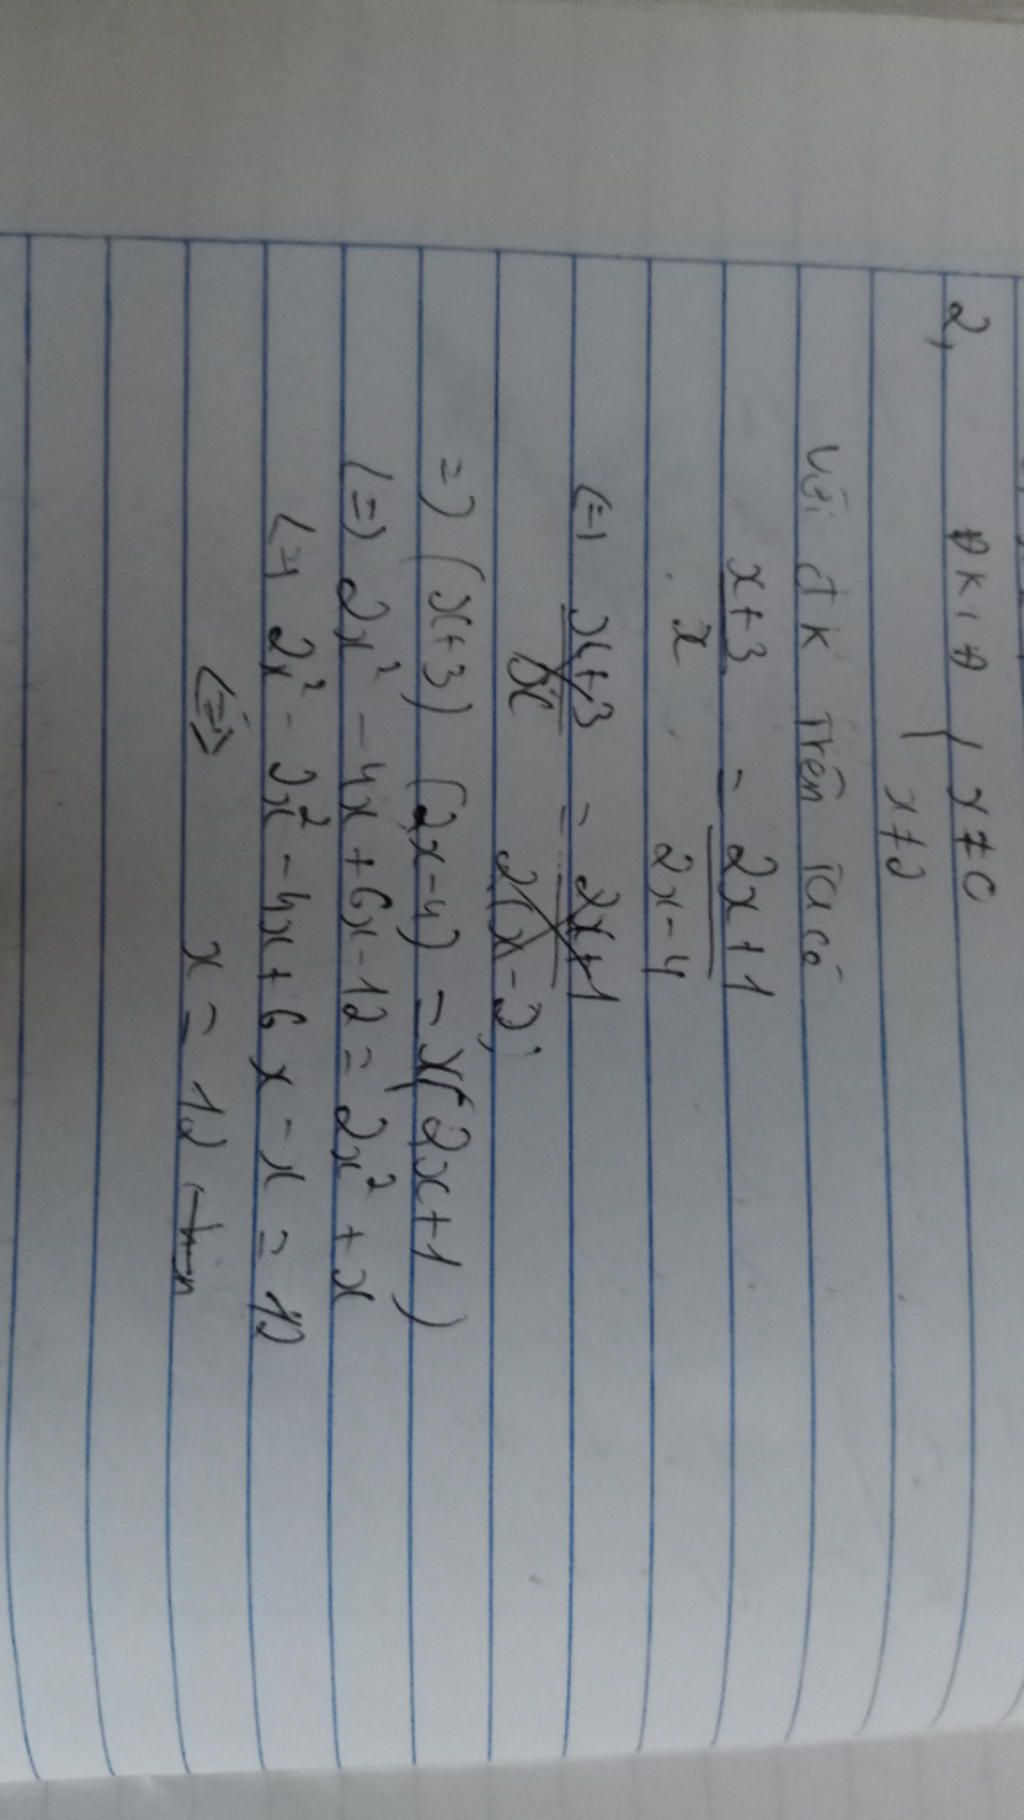 2, ĐKXĐ { x ≠ 0
x ≠ 2
Với đk trên ta có
x+3 / x = 2x+1 / 2x-4
(=) x+3 / x = 2x+1 / 2(x-2)
=) (x+3) (2x-4) = x(2x+1)
(=) 2x² - 4x + 6x - 12 = 2x² + x
(=) 2x² - 2x² - 4x + 6x - x = 12
(=) x = 12